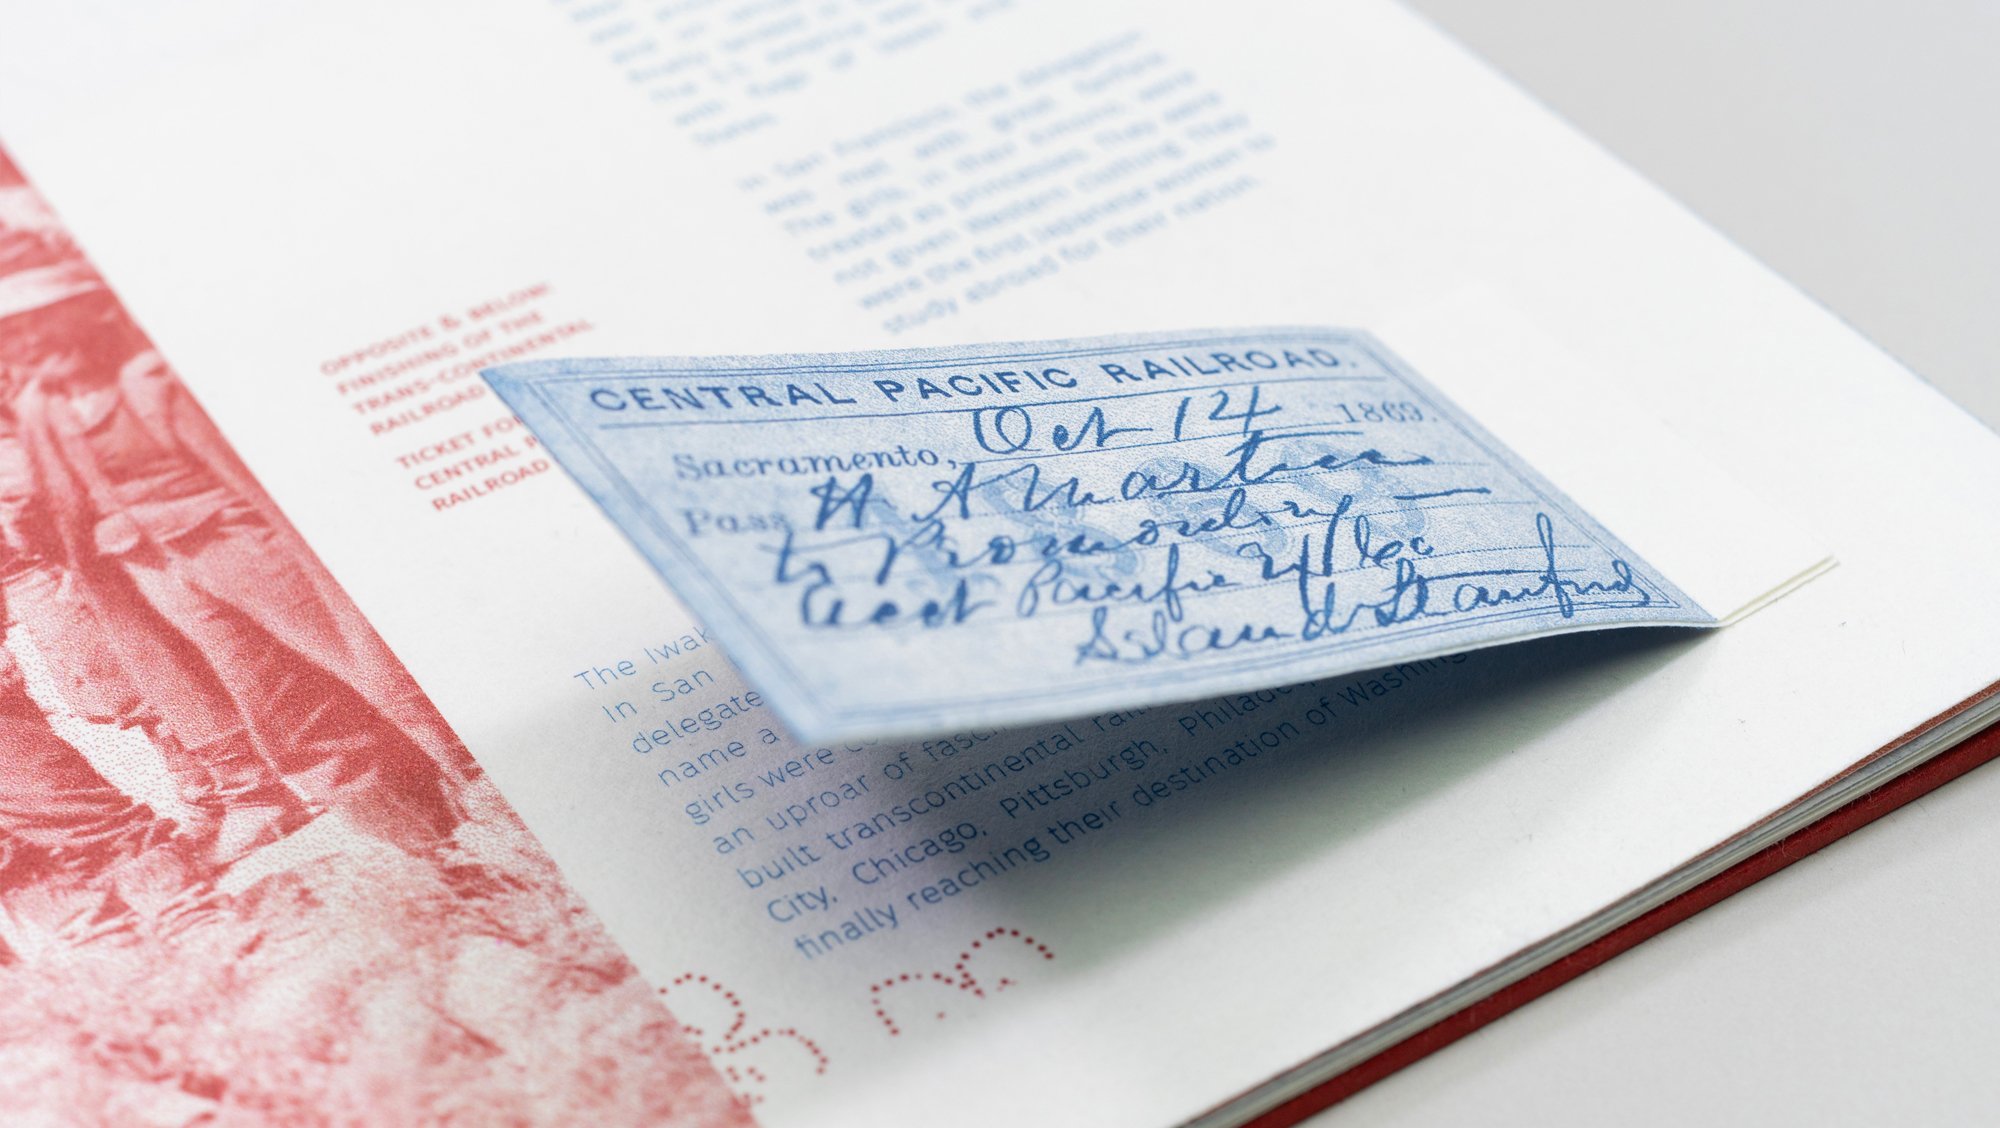 In San Francisco the delegation
was met with great fanfare
The girls, in their kimono, were
treated as princesses. They were
not given Western clothing. They
were the first Japanese women to
study abroad for their nation.
OPPOSITE & BELOW:
FINISHING OF THE
TRANS-CONTINENTAL
RAILROAD
TICKET FO
CENTRAL P
RAILROAD
CENTRAL PACIFIC RAILROAD.
Sacramento, Oct 14 1869.
Pass H A Martin
to Promondiny
acct Pacific
Leland Stanford
The Iwak
In San
delegate
name a
girls were co
an uproar of fasc
built transcontinental rail
City, Chicago, Pittsburgh, Philade
finally reaching their destination of Washing